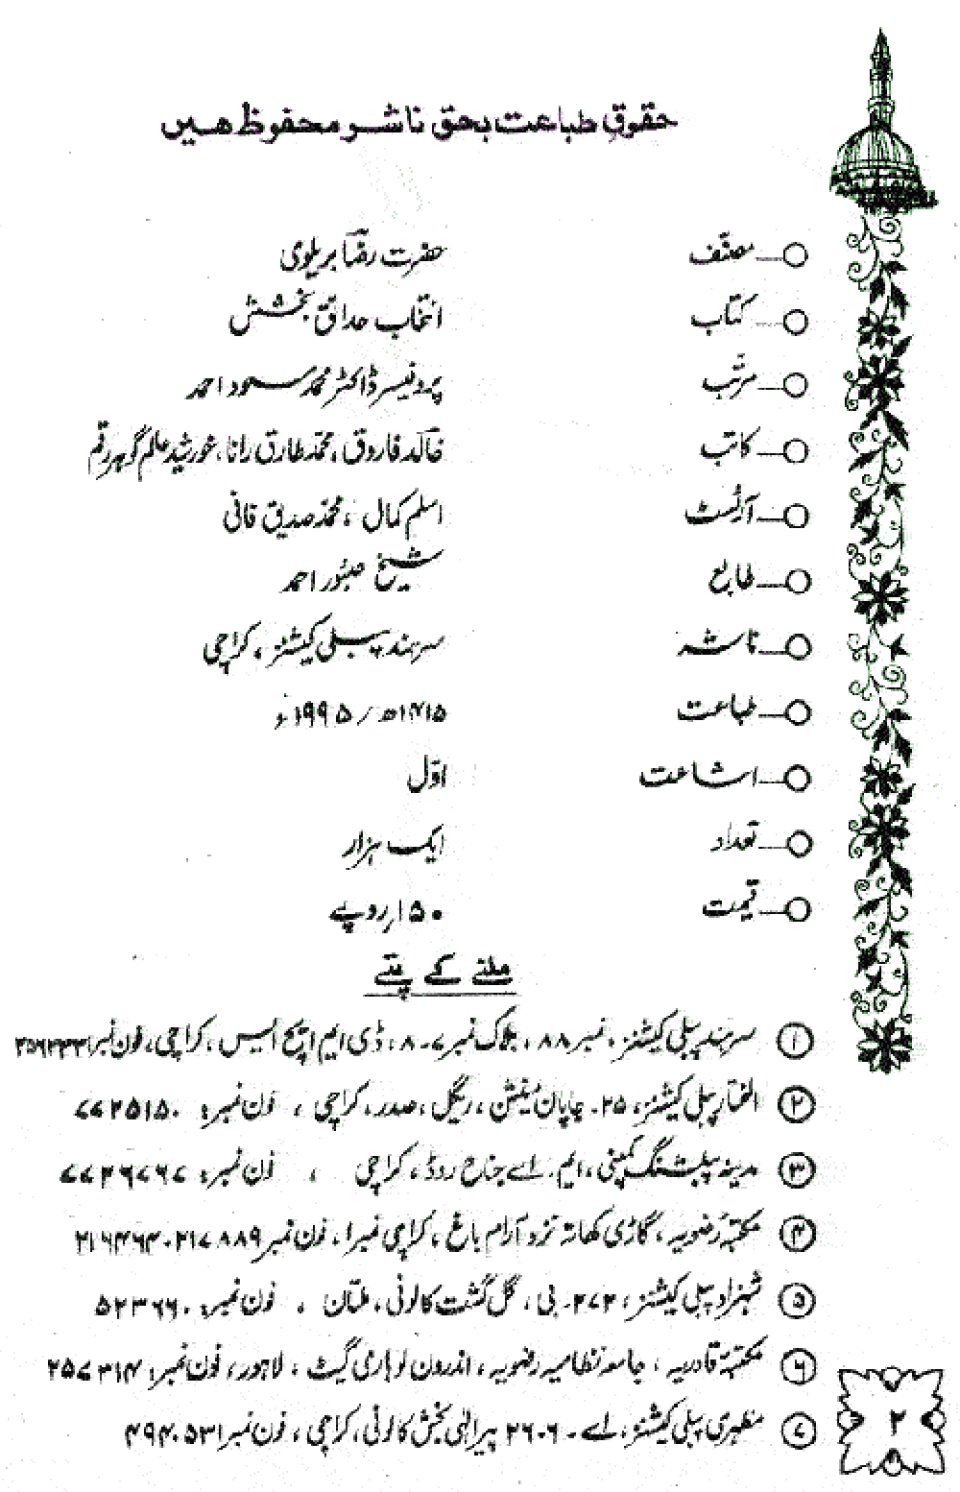 حقوقِ طباعت بحق ناشر محفوظ ہیں
مصنّف حضرت رضاؔ بریلوی
کتاب انتخاب حدائق بخشش
مرتّب پروفیسر ڈاکٹر محمد مسعود احمد
کاتب خالد فاروق، محمد طارق رانا، خورشید عالم گوہر رقم
آرٹسٹ اسلم کمال ، محمد صدیق فانی
طابع شیخ صبّور احمد
ناشر سرہند پبلی کیشنز ، کراچی
طباعت ۱۴۱۵ھ / ۱۹۹۵ء
اشاعت اوّل
تعداد ایک ہزار
قیمت ۱۵۰ روپے
ملنے کے پتے
۱ سرہند پبلی کیشنز، نمبر ۸۸، بلاک نمبر ۷-۸، ڈی ایم ایچ ایس، کراچی، فون نمبر
۲ المختار پبلی کیشنز، ۲۵۔ جاپان مینشن، ریگل، صدر، کراچی ، فون نمبر: ۷۷۲۵۱۵۰
۳ مدینہ پبلشنگ کمپنی، ایم۔ اے جناح روڈ، کراچی ، فون نمبر: ۷۷۲۶۷۶۷
۴ مکتبۂ رضویہ، گاڑی کھاتہ نزد آرام باغ، کراچی نمبر ۱، فون نمبر ۲۱۶۴۶۴۰۲۱۷۸۸۹
۵ شہزاد پبلی کیشنز، ۲۷۲۔ بی، گل گشت کالونی، ملتان ، فون نمبر: ۵۲۳۶۶۰
۶ مکتبۂ قادریہ ، جامعہ نظامیہ رضویہ، اندرون لوہاری گیٹ ، لاہور، فون نمبر: ۲۵۷۳۱۴
۷ مظہری پبلی کیشنز، اے۔ ۲۶۰۶ پیر الٰہی بخش کالونی، کراچی ، فون نمبر ۴۹۴۰۵۳۱
۲